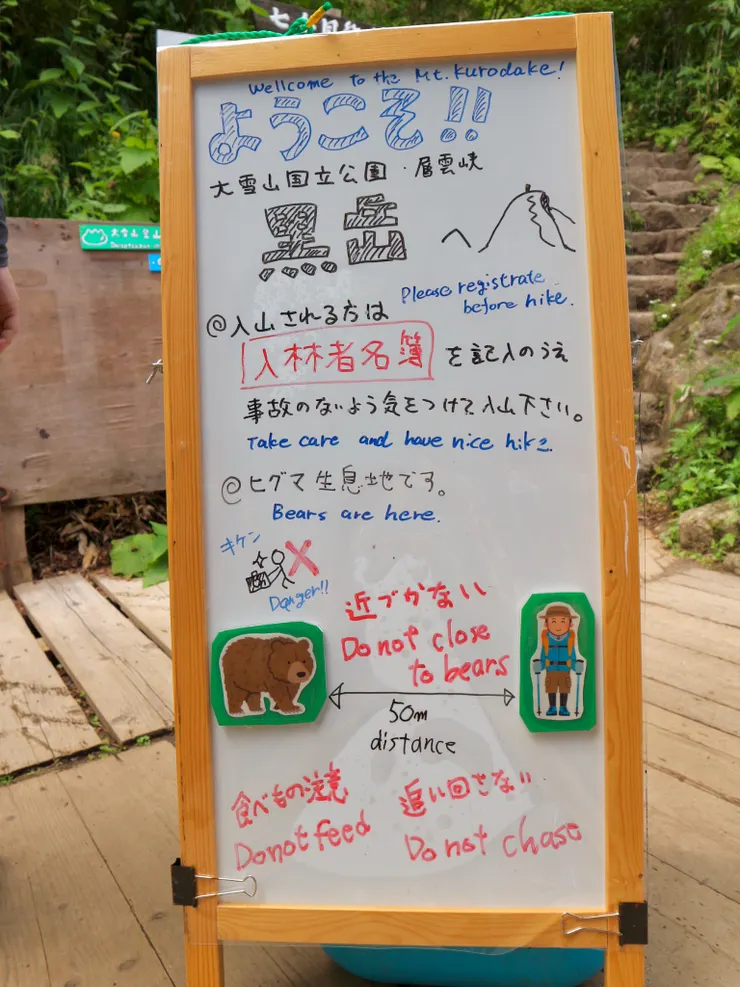 Wellcome to the Mt. Kurodake!
ようこそ!!
大雪山国立公園・層雲峡
黒岳
Please registrate
before hike.
◎入山される方は
入林者名簿 を記入のうえ
事故のないよう気をつけて入山下さい。
Take care and have nice hike.
◎ヒグマ生息地です。
Bears are here.
キケン
Danger!!
近づかない
Do not close
to bears
50m
distance
食べもの注意
Do not feed
追い回さない
Do not chase